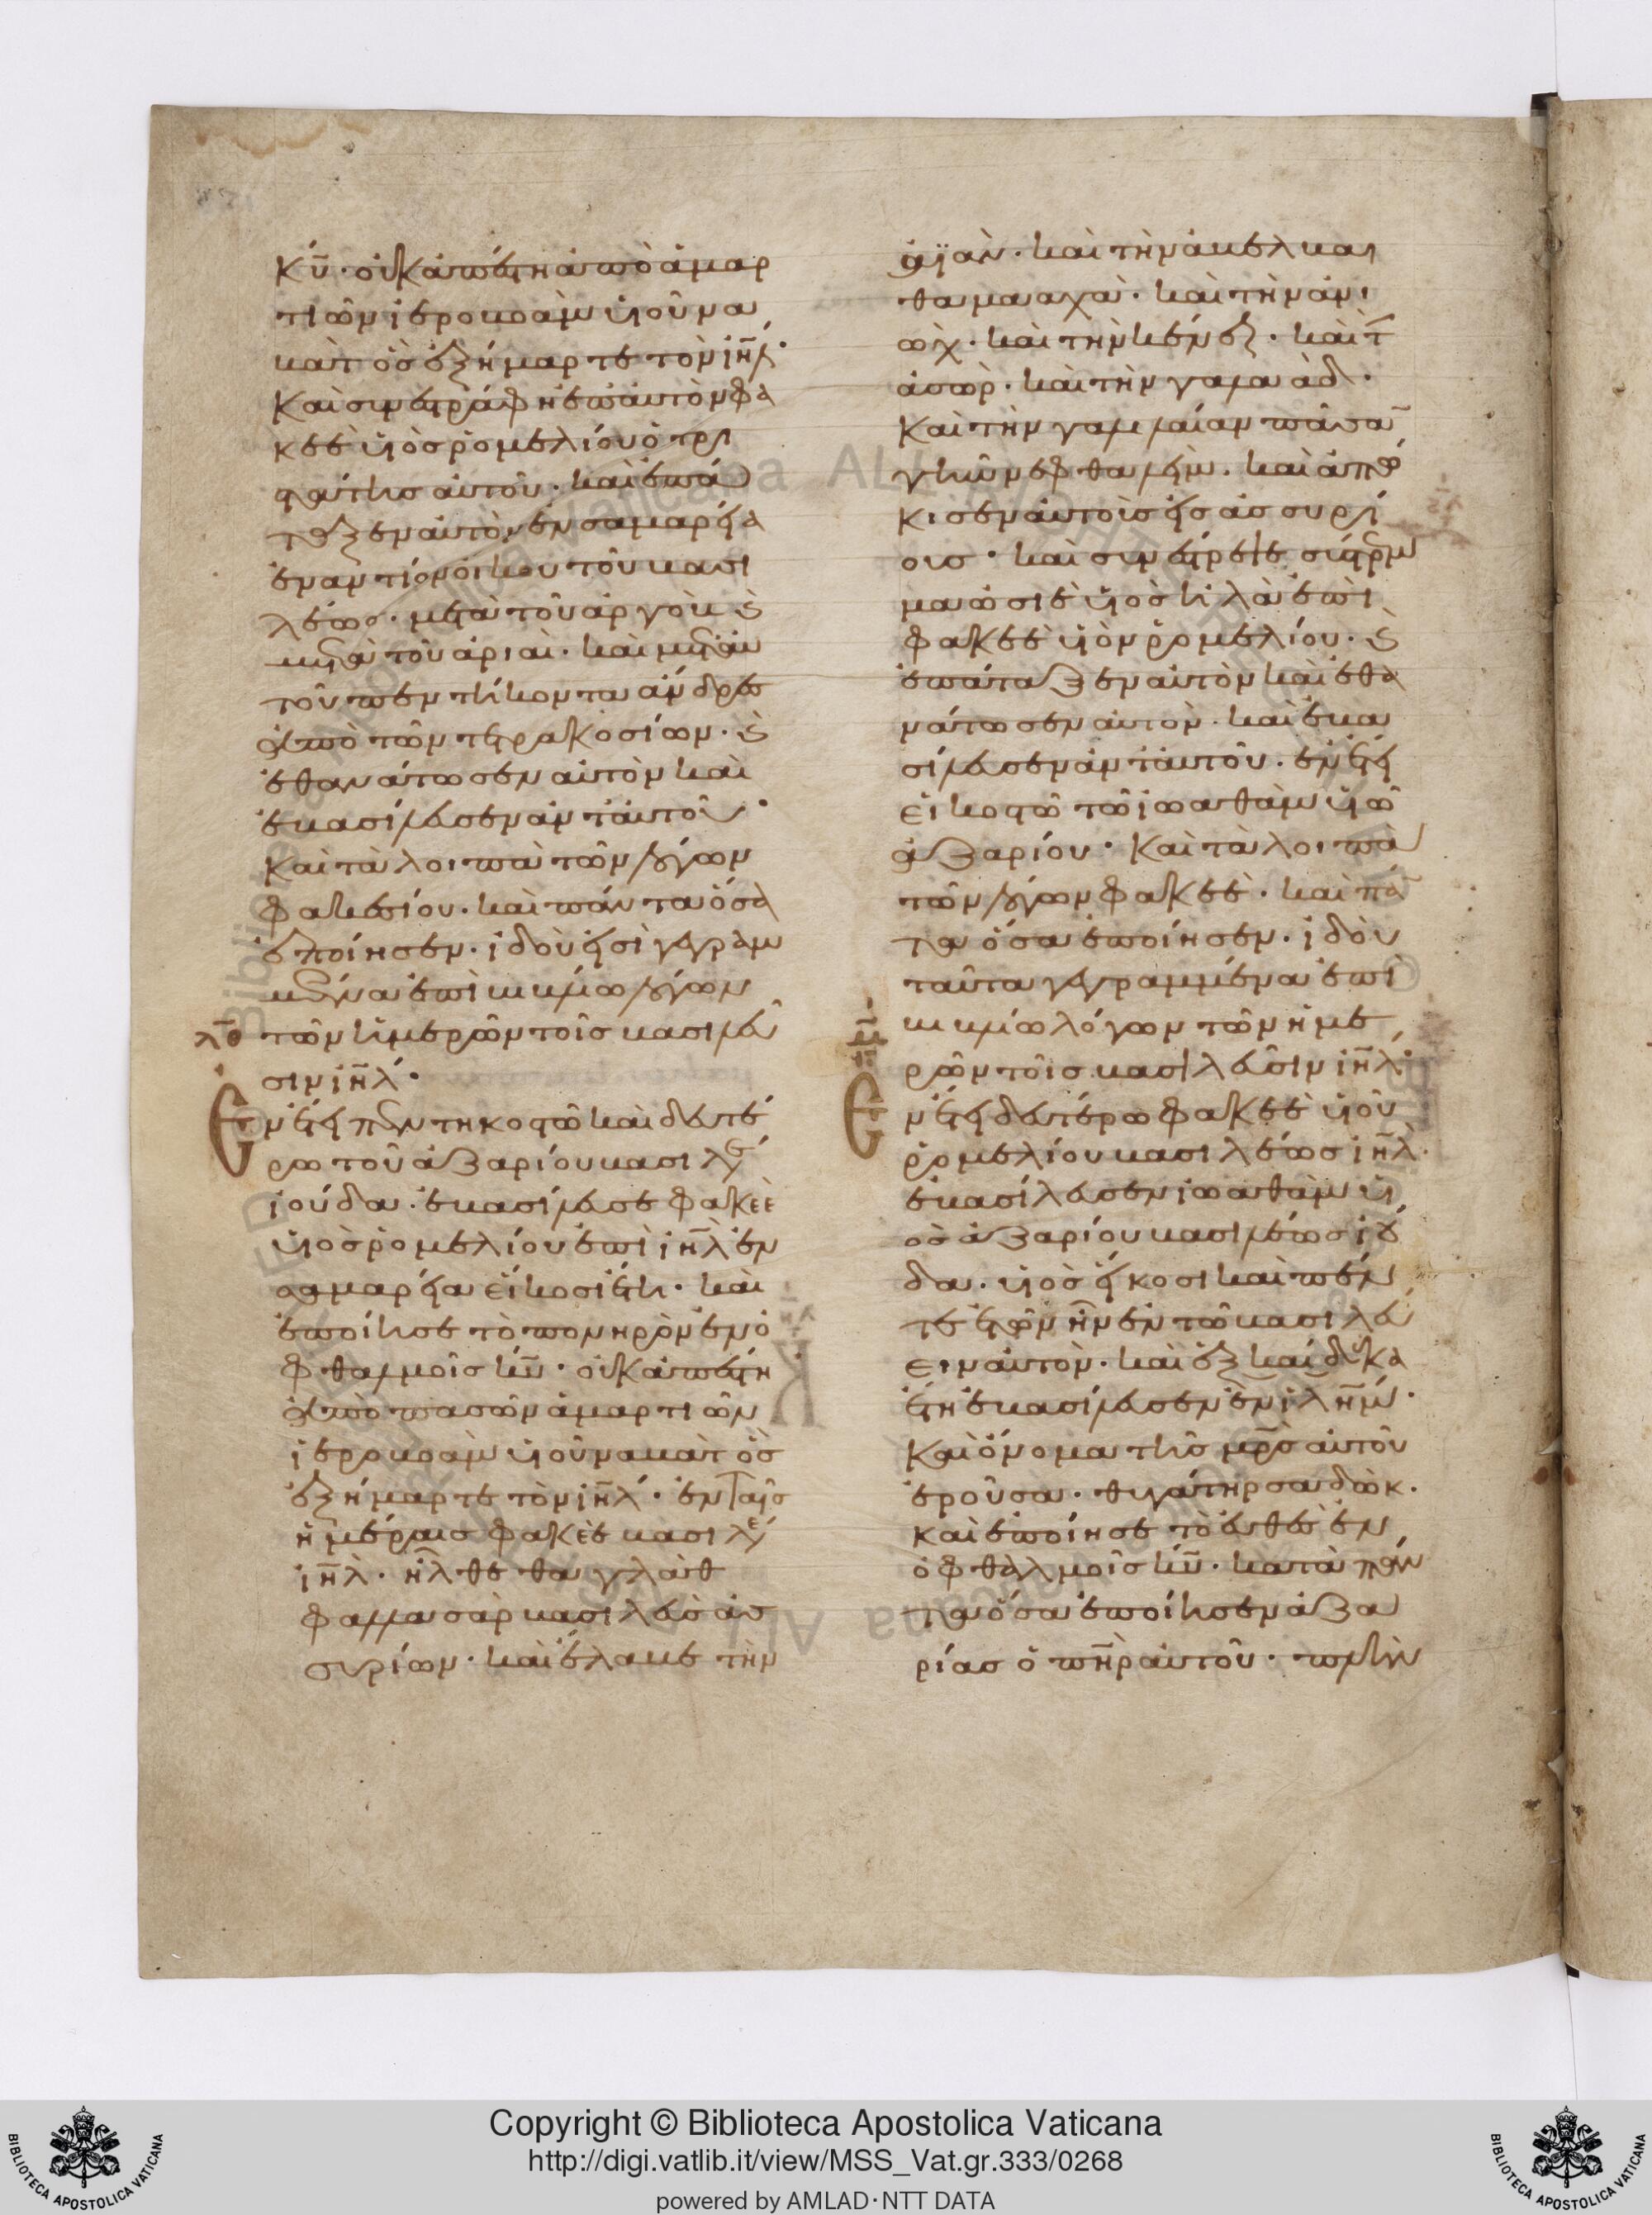 κ̅υ̅· οὐκ ἀπέστη ἀπὸ ἁμαρ
τιῶν ἱεροβοὰμ υἱοῦ να
βὰτ ὃς ἐξήμαρτε τὸν ἰη̅λ·
Καὶ συνεστράφη ἐπ' αὐτὸν φα
κεὲ υἱὸς ῥομελίου ὁ τρι
στάτης αὐτοῦ· καὶ ἐπά
ταξεν αὐτὸν ἐν σαμαρεία
ἐναντίον οἴκου τοῦ βασι
λέως· μετὰ τοῦ ἀργὸβ κὶ
μετὰ τοῦ ἀριαὶ· καὶ μετ' αὐ
τοῦ πεντήκοντα ἄνδρες
ἀπὸ τῶν τετρακοσίων· κὶ
ἐθανάτωσεν αὐτὸν καὶ
ἐβασίλευσεν ἀντ' αὐτοῦ·
Καὶ τὰ λοιπὰ τῶν λόγων
φακεσίου· καὶ πάντα ὅσα
ἐποίησεν· ἰδοὺ εἰσὶ γεγραμ
μένα ἐπὶ βιβλίω λόγων
τῶν ἡμερῶν τοῖς βασιλεῦ
λ̅θ̅
σιν ἰη̅λ·
Ἐν ἔτει πεντηκοστῶ καὶ δευτέ
ρω τοῦ ἀζαρίου βασιλέ
ἰούδα· ἐβασίλευσε φακεὲ
υἱὸς ῥομελίου ἐπὶ ἰη̅λ ἐν
σαμαρεία εἴκοσι ἔτη· καὶ
ἐποίησε τὸ πονηρὸν ἐν ὀ
φθαλμοῖς κ̅υ̅· οὐκ ἀπέστη
ἀπὸ πασῶν ἁμαρτιῶν
ἱεροβοὰμ υἱοῦ ναβὰτ ὃς
ἐξήμαρτε τὸν ἰη̅λ· ἐν ταῖς
ἡμέραις φακὲε βασιλέ
ἰη̅λ· ἦλθε θαγλὰθ
φαλλασὰρ βασιλεὺς ἀσ
συρίων· καὶ ἔλαβε τὴν
ἀϊὰν· καὶ τὴν ἀβελ βαι
θαμααχὰ· καὶ τὴν ἀνι
ὼχ· καὶ τὴν κένεζ· καὶ τ̅
ἀσὼρ· καὶ τὴν γαλαὰδ·
Καὶ τὴν γαλιλαίαν πᾶσα̅
γῆν νεφθαλεὶμ· καὶ ἀπώ
κισεν αὐτοὺς εἰς ἀσσυρί
ους· καὶ συνέστρεψε σύστρεμ
μα ὠσιὲ υἱὸς ἠλὰ ἐπὶ
φακεὲ υἱὸν ῥομελίου· κὶ
ἐπάταξεν αὐτὸν καὶ ἐθα
νάτωσεν αὐτὸν· καὶ ἐβα
σίλευσεν ἀντ' αὐτοῦ· ἐν ἔτει
εἰκοστῶ τῶ ἰωαθὰμ υἱῶ
ἀζαρίου· Καὶ τὰ λοιπὰ
τῶν λόγων φακεὲ· καὶ πά̅
τα ὅσα ἐποίησεν· ἰδοὺ
ταῦτα γεγραμμένα ἐπὶ
βιβλίω λόγων τῶν ἡμε
ρῶν τοῖς βασιλεῦσιν ἰη̅λ·
Ἐν ἔτει δευτέρω φακεὲ υἱοῦ
ῥομελίου βασιλέως ἰη̅λ·
ἐβασίλευσεν ἰωαθὰμ υἱ
ὸς ἀζαρίου βασιλέως ἰού
δα· υἱὸς εἴκοσι καὶ πέν
τε ἐτῶν ἦν ἐν τῶ βασιλεύ
ειν αὐτὸν· καὶ ἓξ καὶ δέκα
ἔτη ἐβασίλευσεν ἐν ἰλη̅μ·
Καὶ ὄνομα τῆς μρ̅ς αὐτοῦ
ἐροῦσα· θυγάτηρ σαδὼκ·
καὶ ἐποίησε τὸ εὐθὲς ἐν
ὀφθαλμοῖς κ̅υ̅· κατὰ πάν
τα ὅσα ἐποίησεν ἀζα
ρίας ὁ πη̅ρ αὐτοῦ· πλὴν
Copyright © Biblioteca Apostolica Vaticana
http://digi.vatlib.it/view/MSS_Vat.gr.333/0268
powered by AMLAD·NTT DATA
BIBLIOTECA APOSTOLICA VATICANA
BIBLIOTECA APOSTOLICA VATICANA